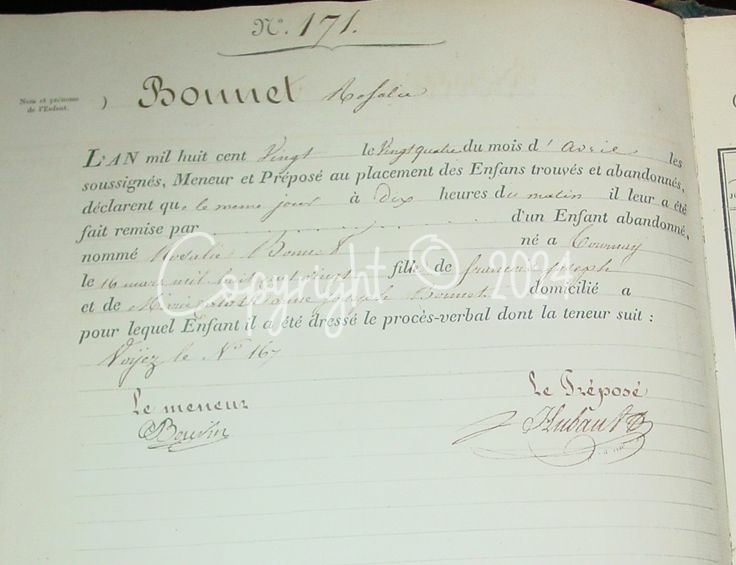 N°. 171.
Nom et prénoms
de l'Enfant.
) Bonnet Rosalie
L'AN mil huit cent Vingt le Vingt quatre du mois d'avril les
soussignés, Meneur et Préposé au placement des Enfans trouvés et abandonnés,
déclarent que le meme jour à Dix heures du matin il leur a été
fait remise par d'un Enfant abandonné,
nommé Rosalie Bonnet né a Tournay
le 16 mars mil huit cent vingt fille de francois joseph
et de Bonnet domicilié a
pour lequel Enfant il a été dressé le procès-verbal dont la teneur suit :
Voÿez le N° 167
Le meneur
Le Préposé
Copyright © 2024